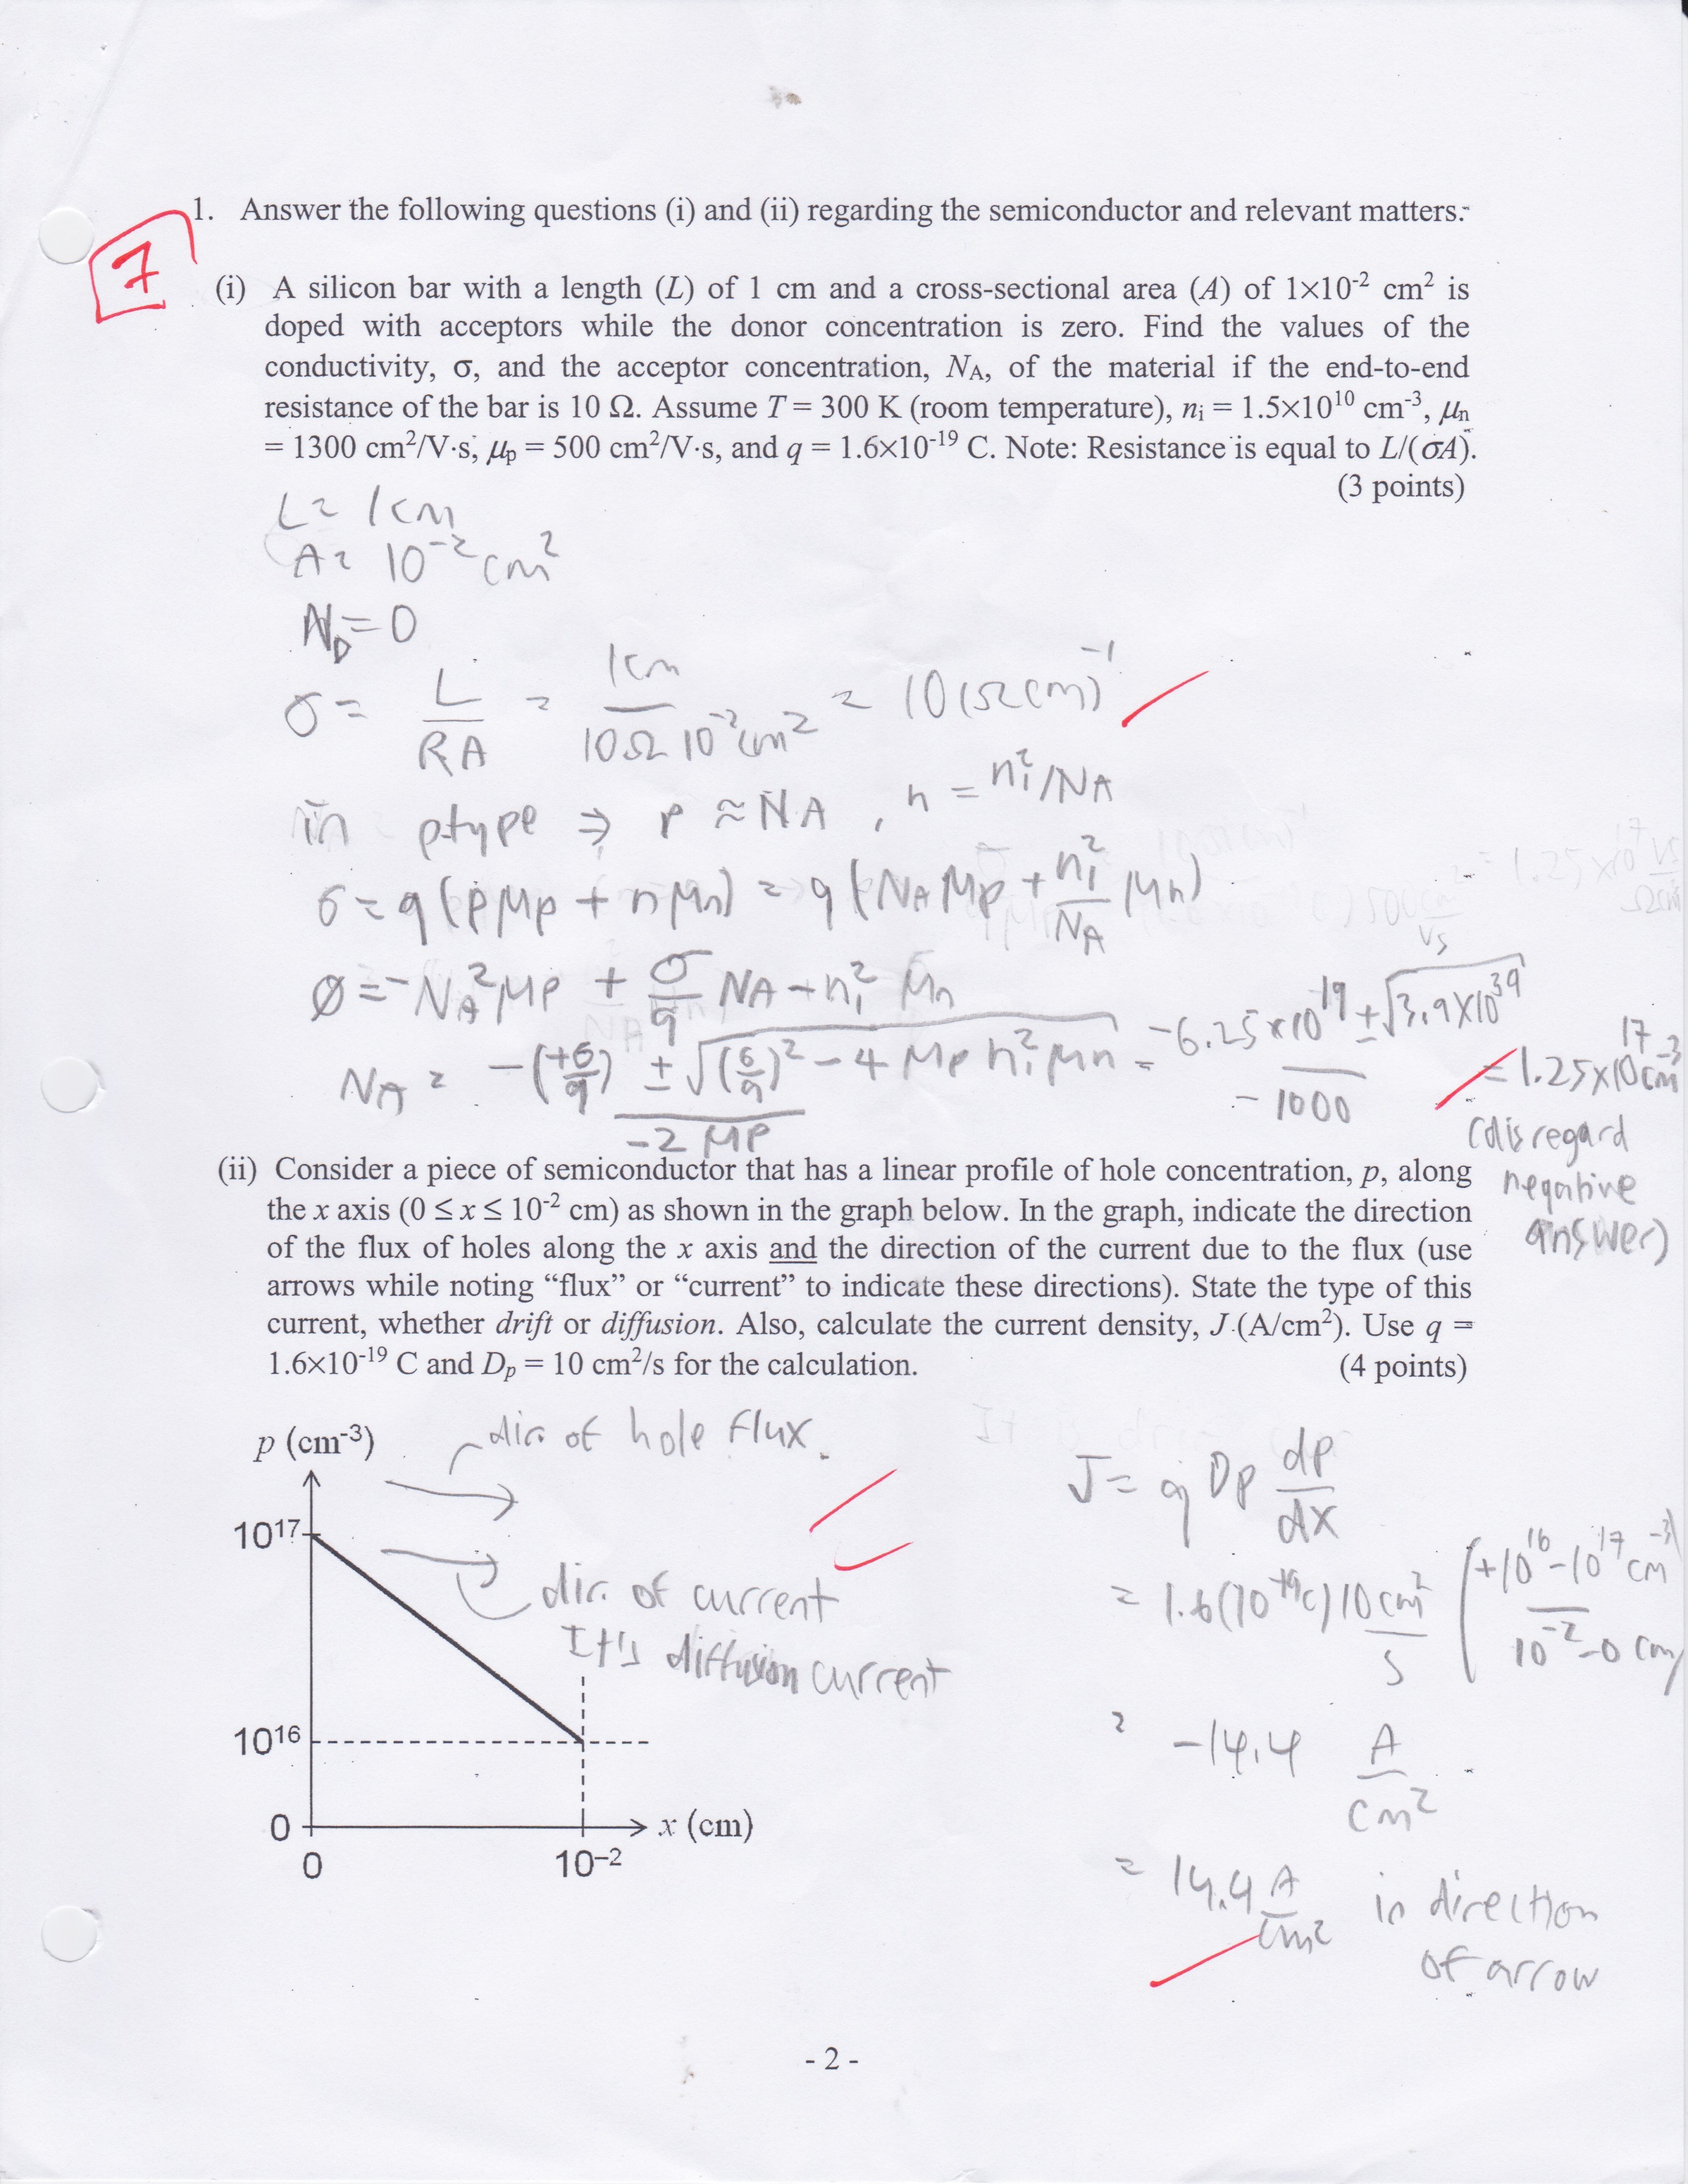 7
1. Answer the following questions (i) and (ii) regarding the semiconductor and relevant matters.
(i) A silicon bar with a length (L) of 1 cm and a cross-sectional area (A) of 1×10⁻² cm² is
doped with acceptors while the donor concentration is zero. Find the values of the
conductivity, σ, and the acceptor concentration, N_A, of the material if the end-to-end
resistance of the bar is 10 Ω. Assume T = 300 K (room temperature), n_i = 1.5×10¹⁰ cm⁻³, μ_n
= 1300 cm²/V·s, μ_p = 500 cm²/V·s, and q = 1.6×10⁻¹⁹ C. Note: Resistance is equal to L/(σA).
(3 points)
L = 1 cm
A = 10⁻² cm²
N_D = 0
σ = L/(RA) = 1cm/(10Ω 10⁻² cm²) = 10 (Ωcm)⁻¹
in p-type ⇒ p ≈ NA, n = n_i²/NA
σ = q(pμp + nμn) = q(NAμp + n_i²/NA μn)
Ø = -NA²μp + σ/q NA - n_i² μn
NA = (-(+σ/q) ± √((σ/q)² - 4 μp n_i² μn))/(-2μp) = (-6.25×10¹⁹ ± √(3.9×10³⁹))/(-1000) = 1.25×10¹⁷ cm⁻³
(disregard
negative
answer)
(ii) Consider a piece of semiconductor that has a linear profile of hole concentration, p, along
the x axis (0 ≤ x ≤ 10⁻² cm) as shown in the graph below. In the graph, indicate the direction
of the flux of holes along the x axis and the direction of the current due to the flux (use
arrows while noting “flux” or “current” to indicate these directions). State the type of this
current, whether drift or diffusion. Also, calculate the current density, J (A/cm²). Use q =
1.6×10⁻¹⁹ C and D_p = 10 cm²/s for the calculation.
(4 points)
p (cm⁻³)
dir. of hole flux
10¹⁷
dir. of current
It's diffusion current
10¹⁶
0
x (cm)
0
10⁻²
J = q Dp dp/dx
= 1.6(10⁻¹⁹C) 10 cm²/s (+10¹⁶-10¹⁷ cm⁻³)/(10⁻²-0 cm)
= -14.4 A/cm²
= 14.4 A/cm² in direction
of arrow
- 2 -